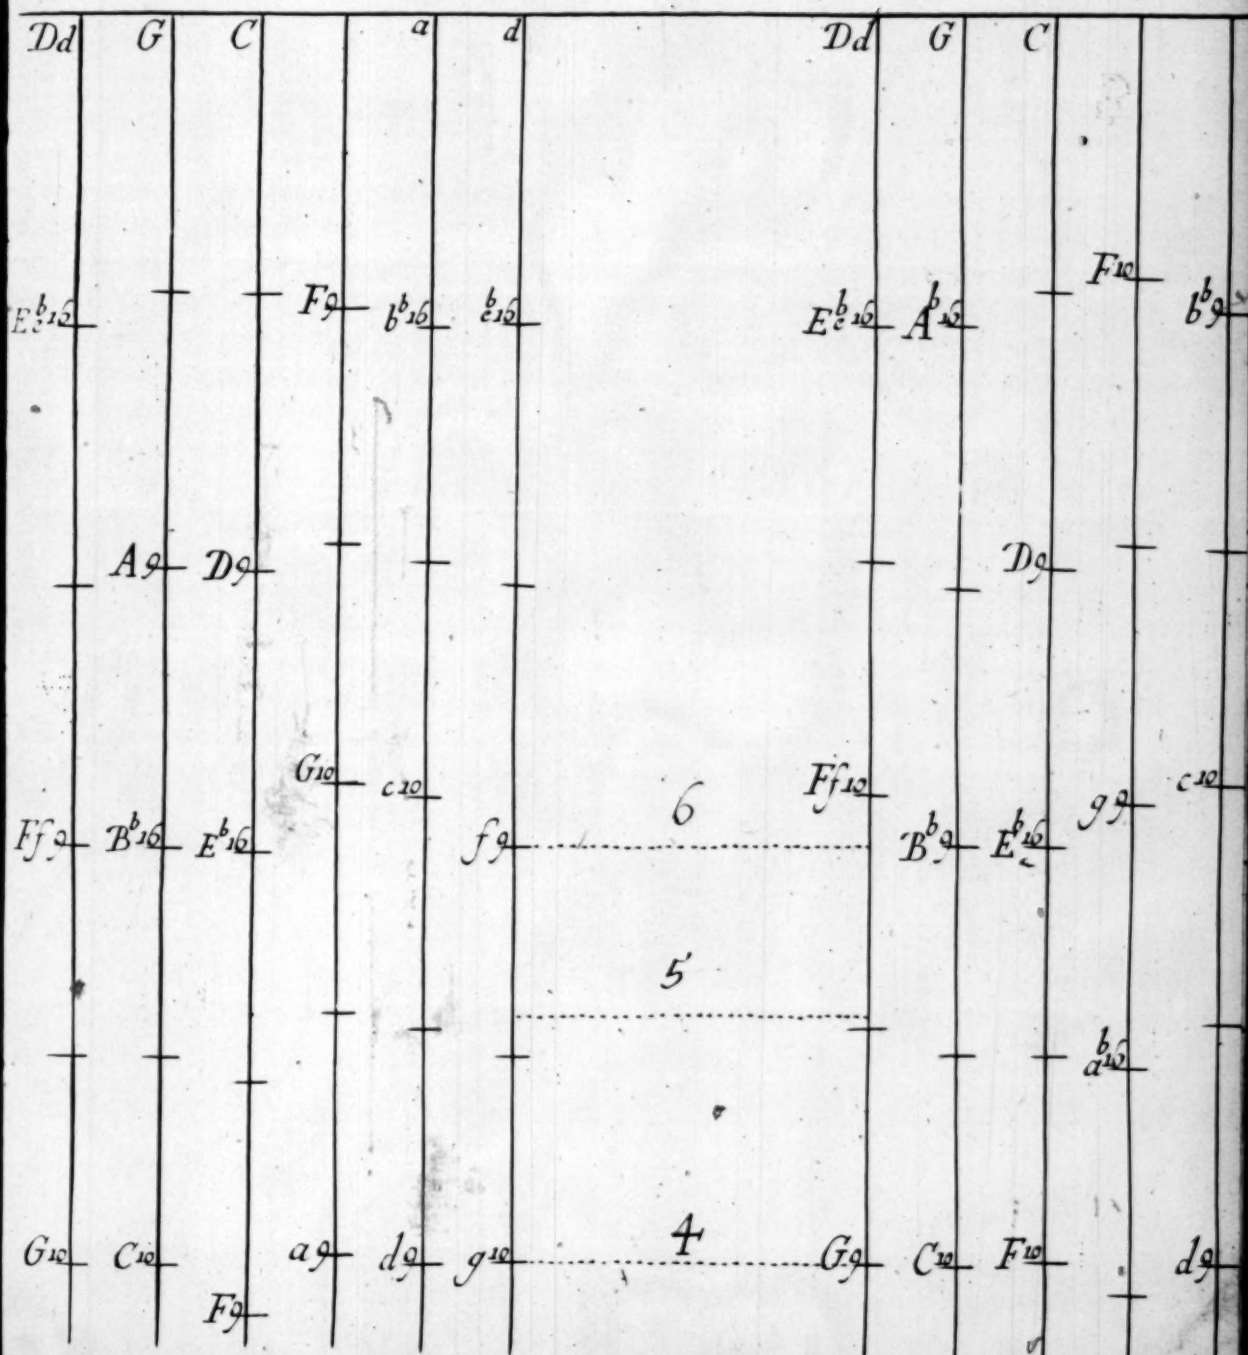 Dd G C a d Dd G C
F10
Eᵇe16 F9 bᵇ16 eᵇ16 Eᵇe16 Aᵇ16 bᵇ9
A9 D9 D9
G10 c10 Ff10 c10
6 g9
Ff9 Bᵇ16 Eᵇ16 f9 Bᵇ9 Eᵇ16
5
aᵇ16
4
G10 C10 a9 d9 g10 G9 C10 F10 d9
F9